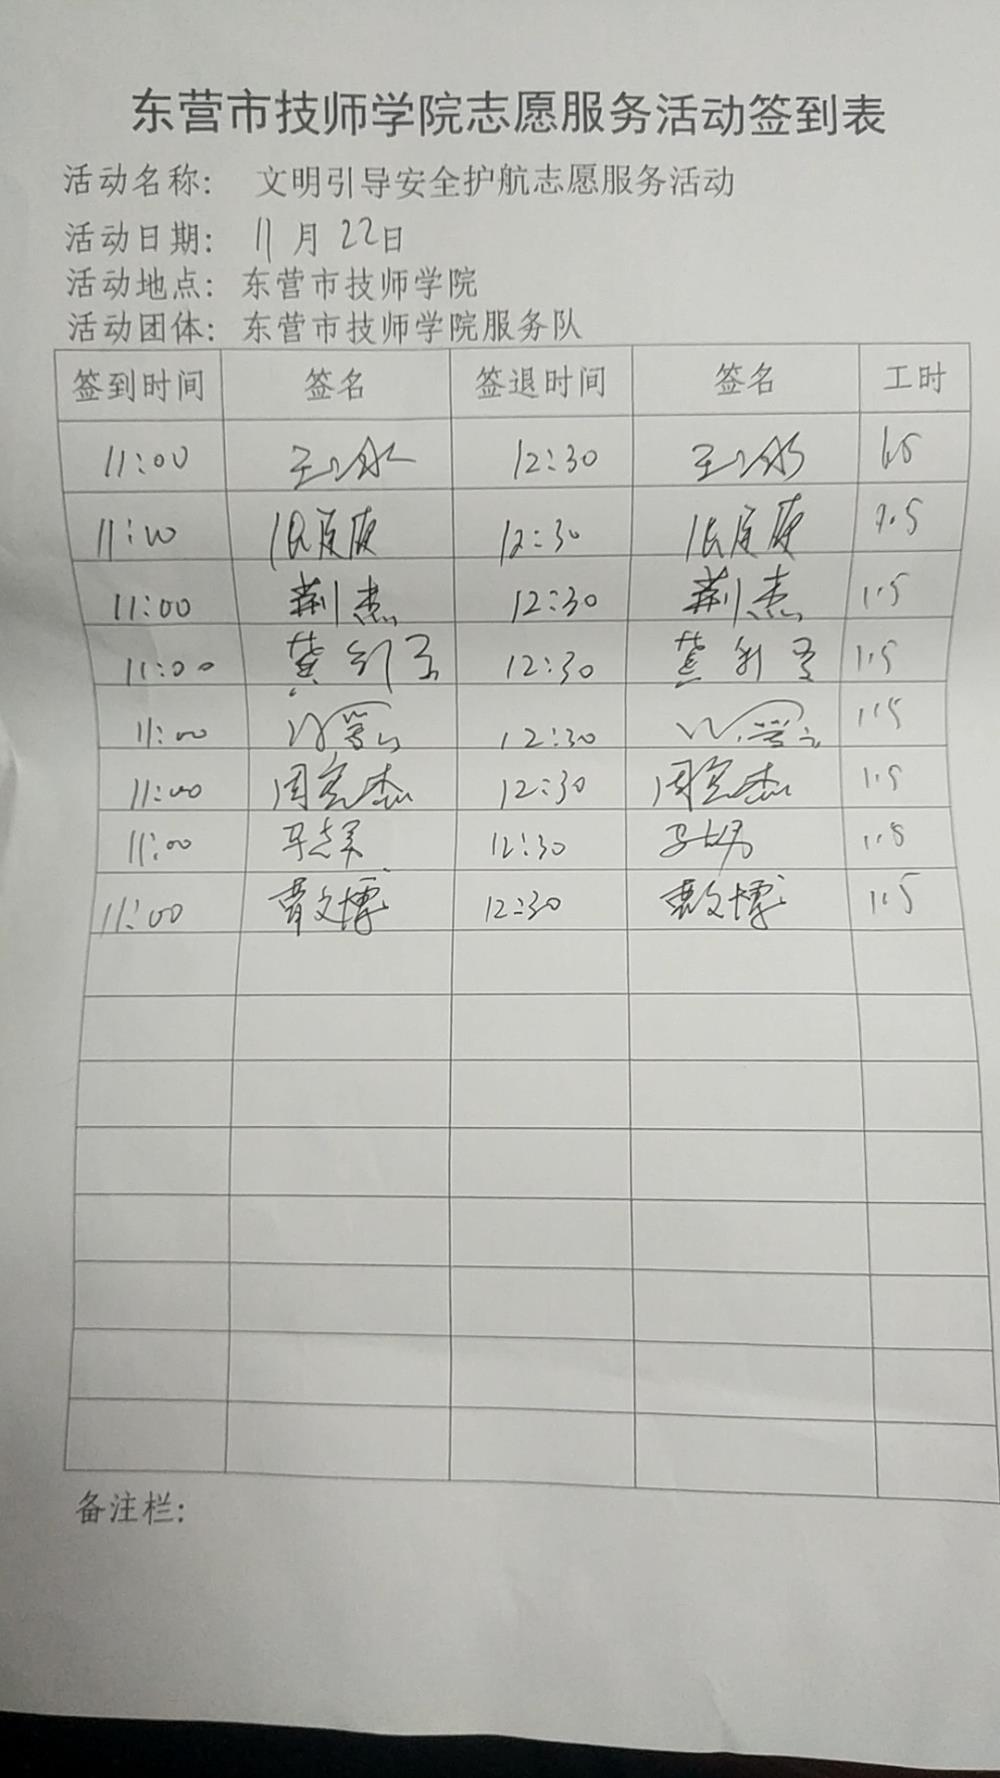 东营市技师学院志愿服务活动签到表
活动名称： 文明引导安全护航志愿服务活动
活动日期： 11月22日
活动地点：东营市技师学院
活动团体：东营市技师学院服务队
签到时间 签名 签退时间 签名 工时
11:00 12:30 1.5
11:00 12:30 1.5
11:00 荆杰 12:30 荆杰 1.5
11:00 12:30 1.5
11:00 12:30 1.5
11:00 周宝杰 12:30 周宝杰 1.5
11:00 12:30 1.5
11:00 曹文博 12:30 曹文博 1.5
备注栏：